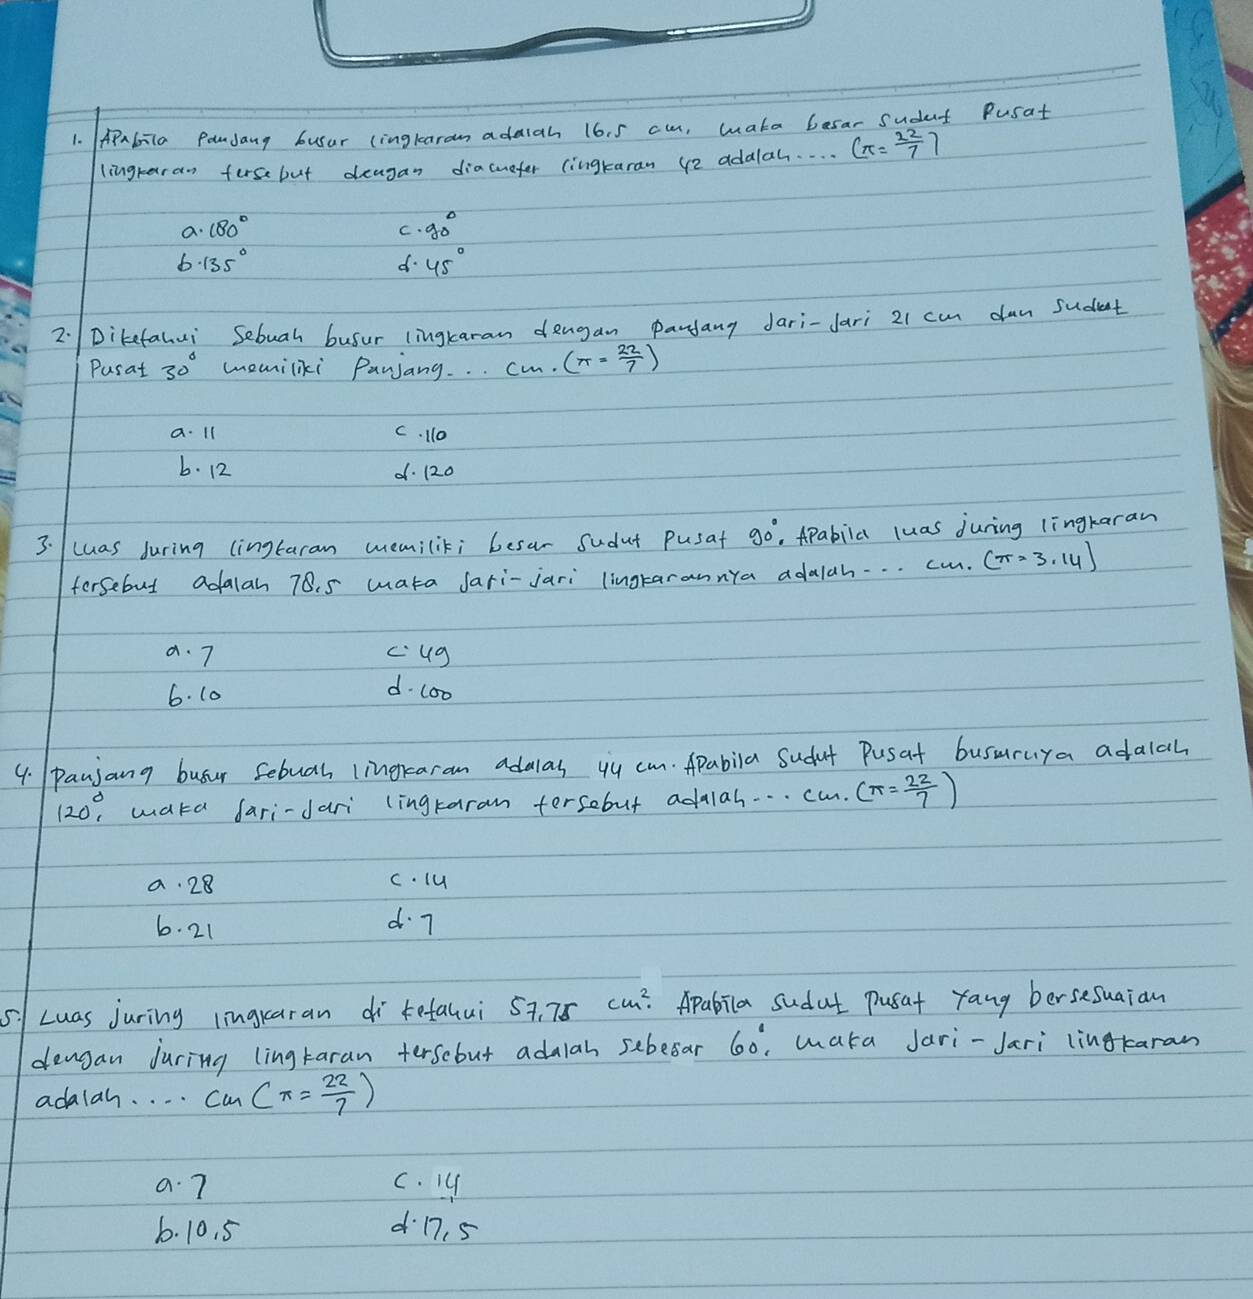 1. Apabila Panjang busur lingkaran adalah 16,5 cm, maka besar sudut Pusat
lingkaran tersebut dengan diameter lingkaran 42 adalah.... (π = 22/7)
a. 180° c. 90°
b. 135° d. 45°
2. Diketahui Sebuah busur lingkaran dengan panjang Jari-Jari 21 cm dan Sudut
Pusat 30° memiliki Panjang... cm. (π = 22/7)
a. 11 c. 110
b. 12 d. 120
3. Luas Juring lingkaran memiliki besar Sudut Pusat 90°. APabila luas juring lingkaran
tersebut adalah 78,5 maka Jari-jari lingkarannya adalah... cm. (π = 3.14)
a. 7 c. 49
b. 10 d. 100
4. Panjang busur Sebuah lingkaran adalah 44 cm. APabila Sudut Pusat busurnya adalah
120°, maka Jari-Jari lingkaran tersebut adalah... cm. (π = 22/7)
a. 28 c. 14
b. 21 d. 7
5. Luas Juring lingkaran di ketahui 57,75 cm². APabila sudut pusat yang bersesuaian
dengan juring lingkaran tersebut adalah sebesar 60°, maka Jari-Jari lingkaran
adalah.... cm (π = 22/7)
a. 7 c. 14
b. 10,5 d. 17,5